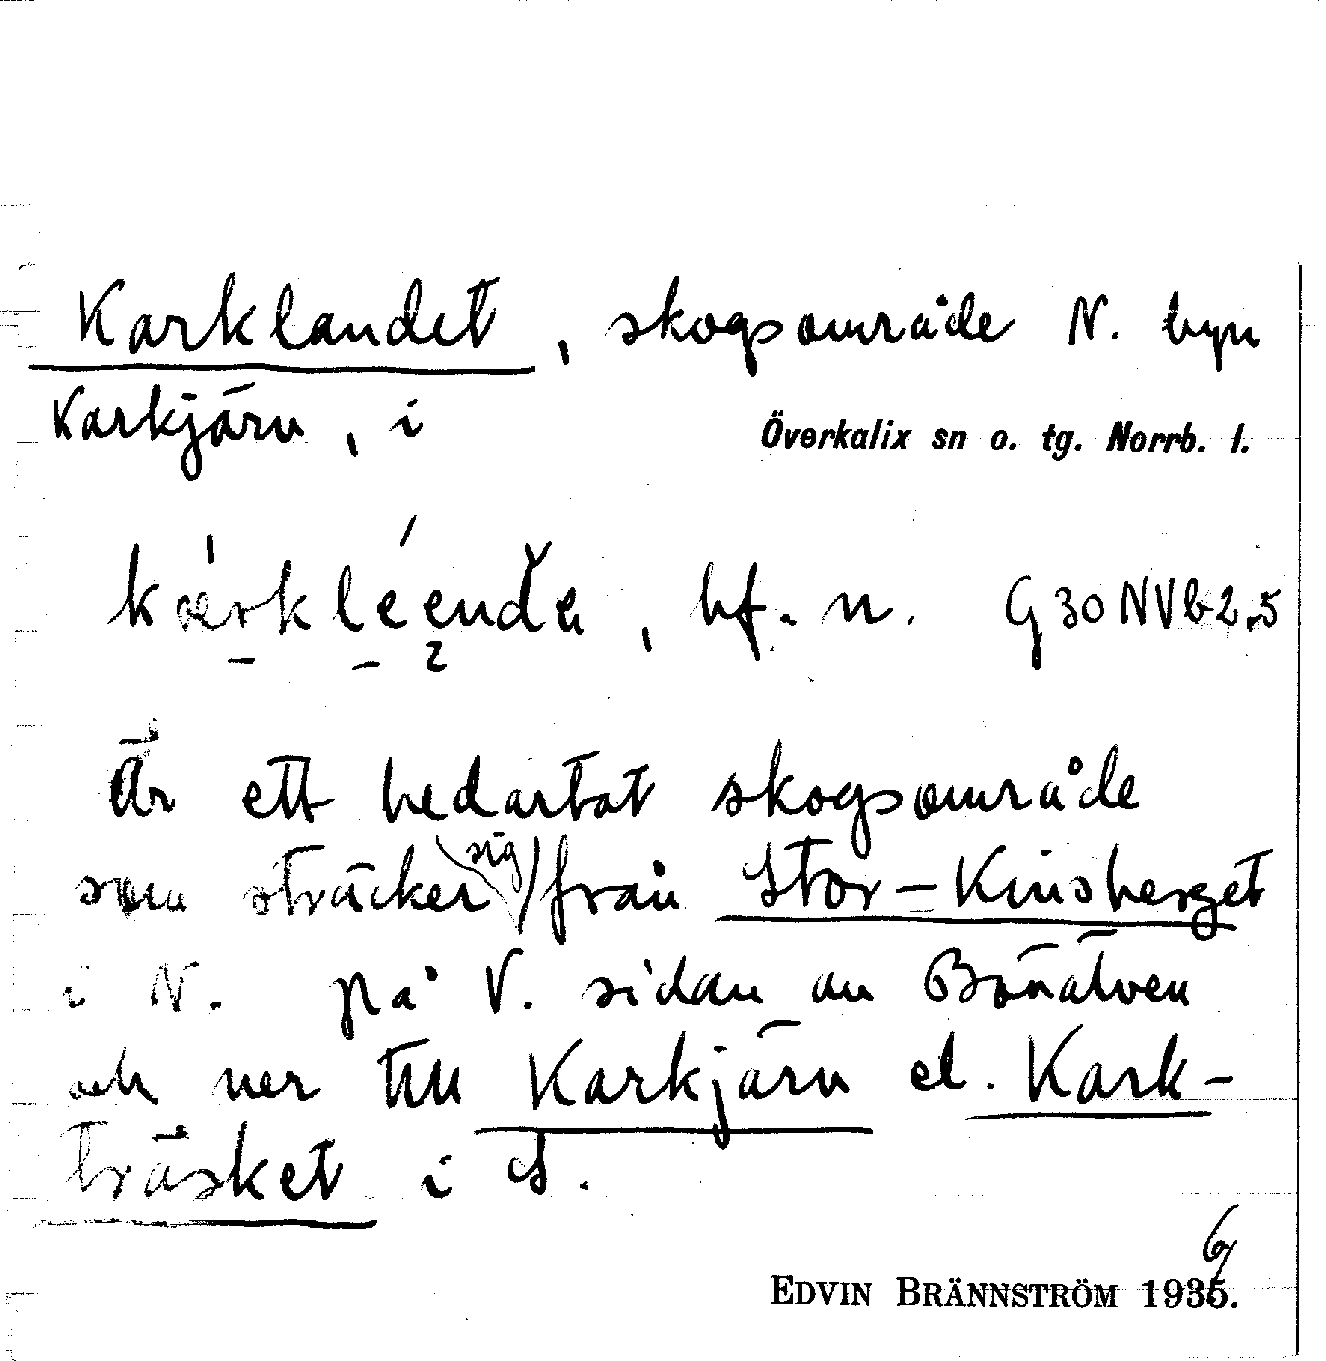 Karklandet, skogsområde N. byn
Karkjärn, i Överkalix sn o. tg. Norrb. l.
bf. n. G30NVb2,5
Är ett hedartat skogsområde
som sträcker sig från Stor-Kinsberget
i N. på V. sidan av Bönälven
och ner till Karkjärn el. Kark-
träsket i S.
6
EDVIN BRÄNNSTRÖM 1935.